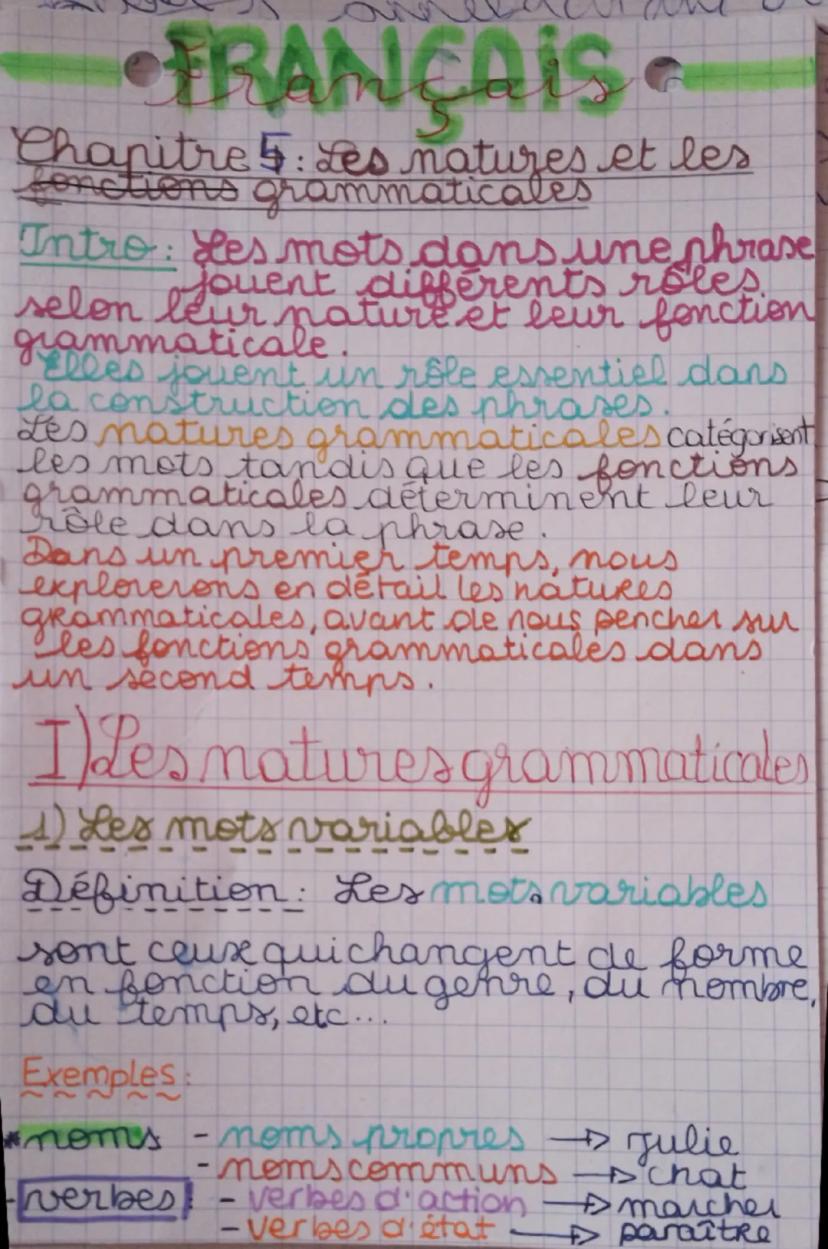 FRANÇAIS
Français
Chapitre 5 : Les natures et les
fonctions grammaticales
Intro : Les mots dans une phrase
jouent différents rôles
selon leur nature et leur fonction
grammaticale.
Elles jouent un rôle essentiel dans
la construction des phrases.
Les natures grammaticales catégorisent
les mots tandis que les fonctions
grammaticales déterminent leur
rôle dans la phrase.
Dans un premier temps, nous
explorerons en détail les natures
grammaticales, avant de nous pencher sur
les fonctions grammaticales dans
un second temps.
I) Les natures grammaticales
1) Les mots variables
Définition : Les mots variables
sont ceux qui changent de forme
en fonction du genre, du nombre,
du temps, etc...
Exemples :
* noms - noms propres → Julie
- noms communs → chat
- verbes - verbes d'action → marcher
- verbes d'état → paraître